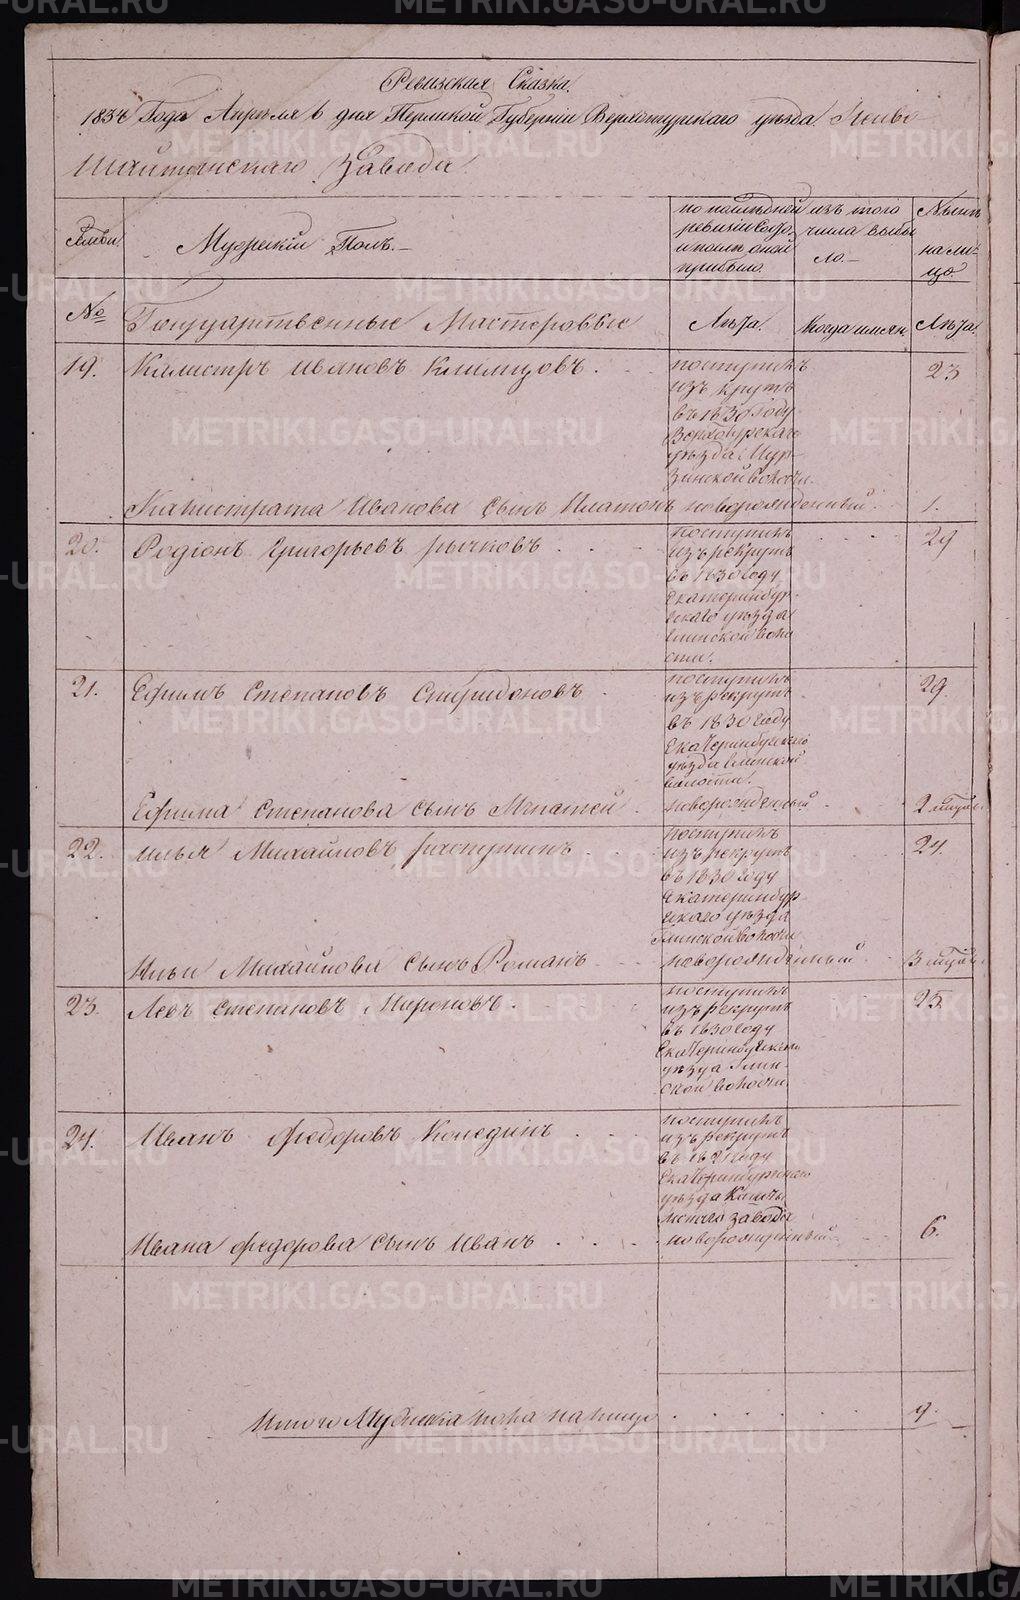 Ревизская Сказка.
1834 Года Апреля в дня Пермской Губернии Верхотурскаго уезда Нейво-
Шайтанскаго Завода.
Семьи
Мужескій Полъ.
по последней
ревизіи состо
и после оной
прибыло.
изъ того
числа выбы
ло.
Ныне
на ли-
цо.
№
Государственные Мастеровые
Лета.
Когда имян.
Лета.
19.
Калистръ Ивановъ Климцовъ
поступилъ
изъ крутъ
въ 1830 году
Верхотурскаго
уезда Мур-
зинской волости.
23
Калистрата Иванова сынъ Платонъ
новорожденный.
1.
20.
Родіонъ Григорьевъ рычковъ
поступилъ
изъ рекрутъ
въ 1830 году
Екатеринбур-
скаго уезда
Глинской воло
сти.
29
21.
Ефимъ Степановъ Спиридоновъ
поступилъ
изъ рекрутъ
въ 1830 году
Екатеринбурскаго
уезда Глинской
волости.
29.
Ефима Степанова сынъ
новорожденный
2
22.
Илья Михайловъ
поступилъ
изъ рекрутъ
въ 1830 году
Екатеринбур-
скаго уезда
Глинской волости
24.
Ильи Михайлова сынъ Романъ
новорожденный
3
23.
Левъ Степановъ Мироновъ
поступилъ
изъ рекрутъ
въ 1830 году
Екатеринбурскаго
уезда Глин-
ской волости
25.
24.
Иванъ Федоровъ
поступилъ
изъ рекрутъ
въ 1821 году
Екатеринбурскаго
уезда
завода
Ивана Федорова сынъ Иванъ
новорожденный
6.
Итого Мужеска пола на лицо
9.
METRIKI.GASO-URAL.RU